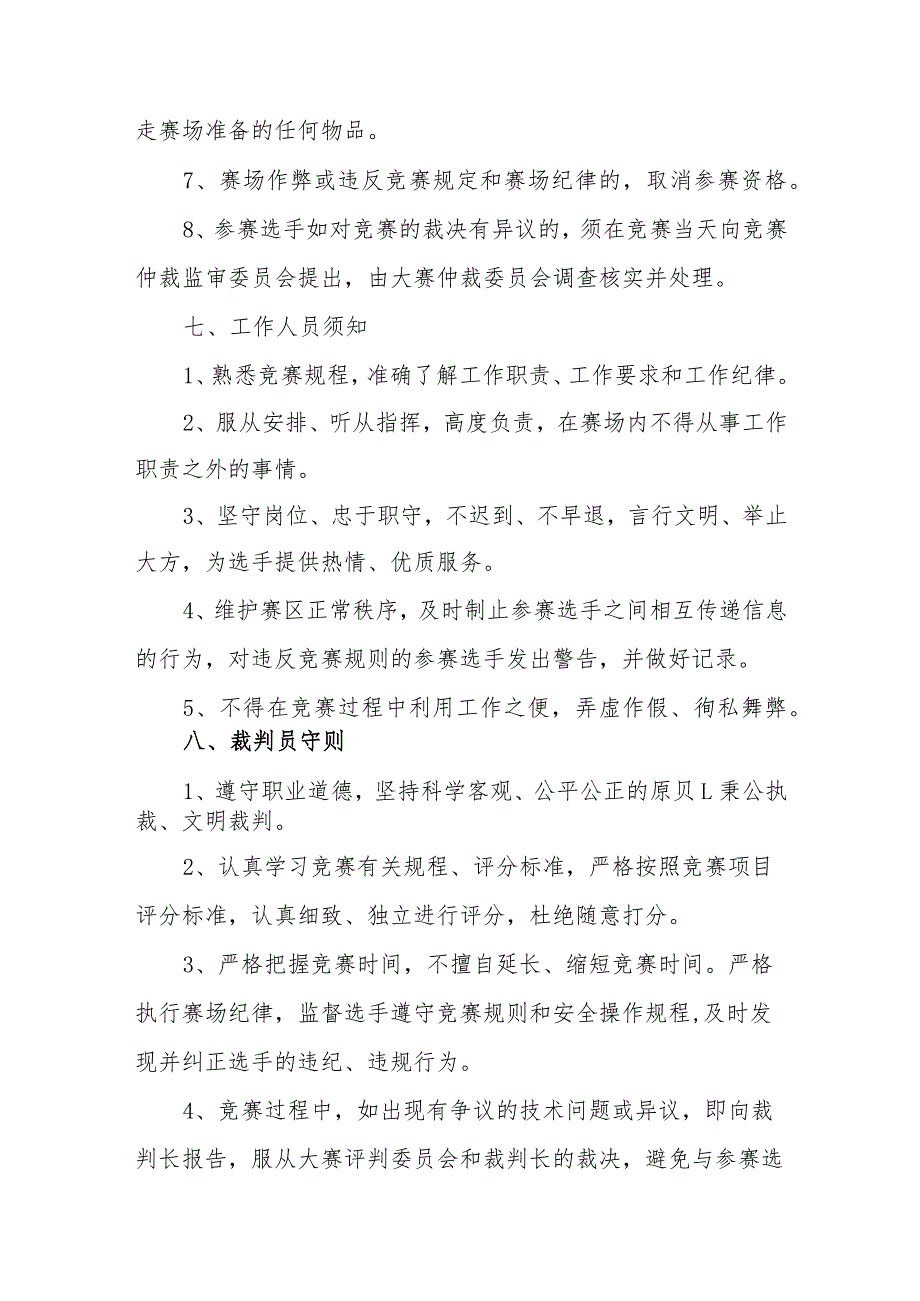 走赛场准备的任何物品。
7、赛场作弊或违反竞赛规定和赛场纪律的，取消参赛资格。
8、参赛选手如对竞赛的裁决有异议的，须在竞赛当天向竞赛
仲裁监审委员会提出，由大赛仲裁委员会调查核实并处理。
七、工作人员须知
1、熟悉竞赛规程，准确了解工作职责、工作要求和工作纪律。
2、服从安排、听从指挥，高度负责，在赛场内不得从事工作
职责之外的事情。
3、坚守岗位、忠于职守，不迟到、不早退，言行文明、举止
大方，为选手提供热情、优质服务。
4、维护赛区正常秩序，及时制止参赛选手之间相互传递信息
的行为，对违反竞赛规则的参赛选手发出警告，并做好记录。
5、不得在竞赛过程中利用工作之便，弄虚作假、徇私舞弊。
八、裁判员守则
1、遵守职业道德，坚持科学客观、公平公正的原贝L秉公执
裁、文明裁判。
2、认真学习竞赛有关规程、评分标准，严格按照竞赛项目
评分标准，认真细致、独立进行评分，杜绝随意打分。
3、严格把握竞赛时间，不擅自延长、缩短竞赛时间。严格
执行赛场纪律，监督选手遵守竞赛规则和安全操作规程,及时发
现并纠正选手的违纪、违规行为。
4、竞赛过程中，如出现有争议的技术问题或异议，即向裁
判长报告，服从大赛评判委员会和裁判长的裁决，避免与参赛选